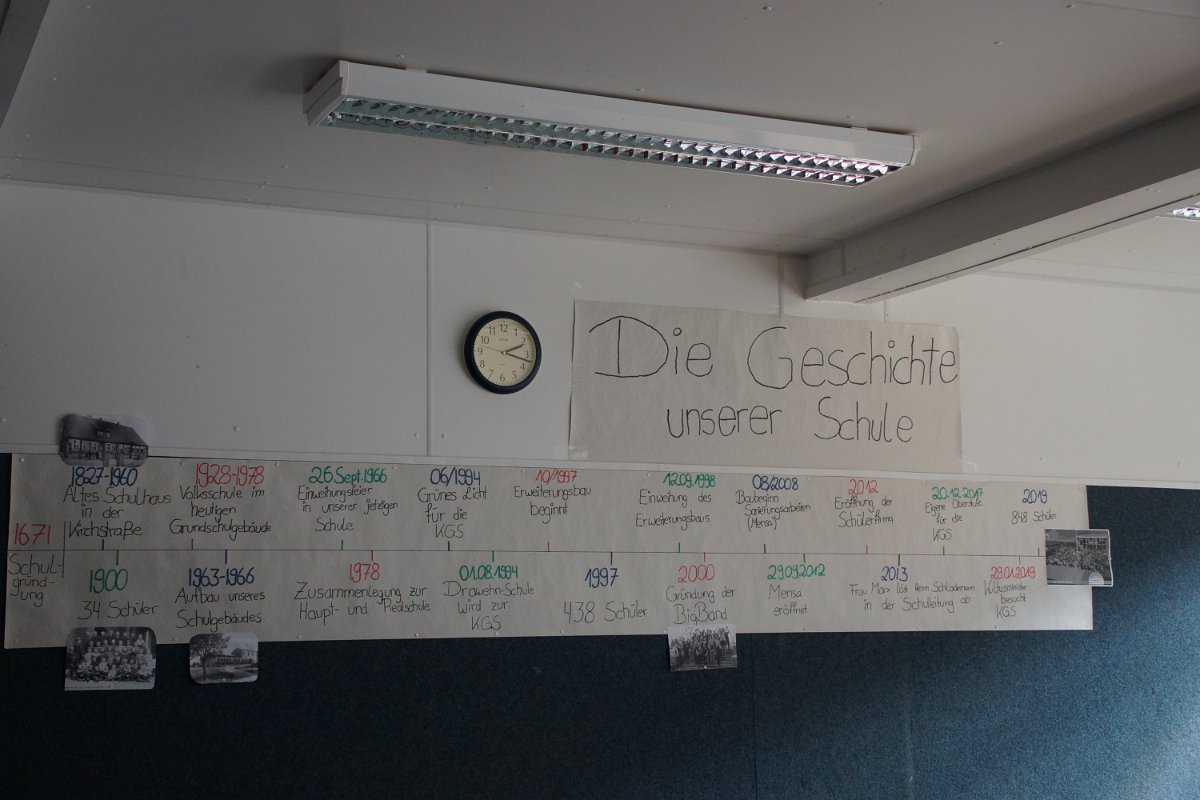 Die Geschichte
unserer Schule
1671
Schul-
gründ-
ung
1827-1960
Altes Schulhaus
in der
Kirchstraße
1900
34 Schüler
1928-1978
Volksschule im
heutigen
Grundschulgebäude
1963-1966
Aufbau unseres
Schulgebäudes
26.Sept.1966
Einweihungsfeier
in unserer jetzigen
Schule
1978
Zusammenlegung zur
Haupt- und Realschule
06/1994
Grünes Licht
für die
KGS
01.08.1994
Drawehn-Schule
wird zur
KGS
10/1997
Erweiterungsbau
beginnt
1997
438 Schüler
12.09.1998
Einweihung des
Erweiterungsbaus
2000
Gründung der
BigBand
08/2008
Baubeginn
Sanierungsarbeiten
(Mensa)
29.09.2012
Mensa
eröffnet
2012
Eröffnung der
Schülerfirma
2013
Frau Marx löst Herrn
in der Schulleitung ab
20.12.2017
Eigene Oberstufe
für die
KGS
29.01.2019
Kultusminister
besucht
KGS
2019
848 Schüler
12
1
2
3
4
5
6
7
8
9
10
11